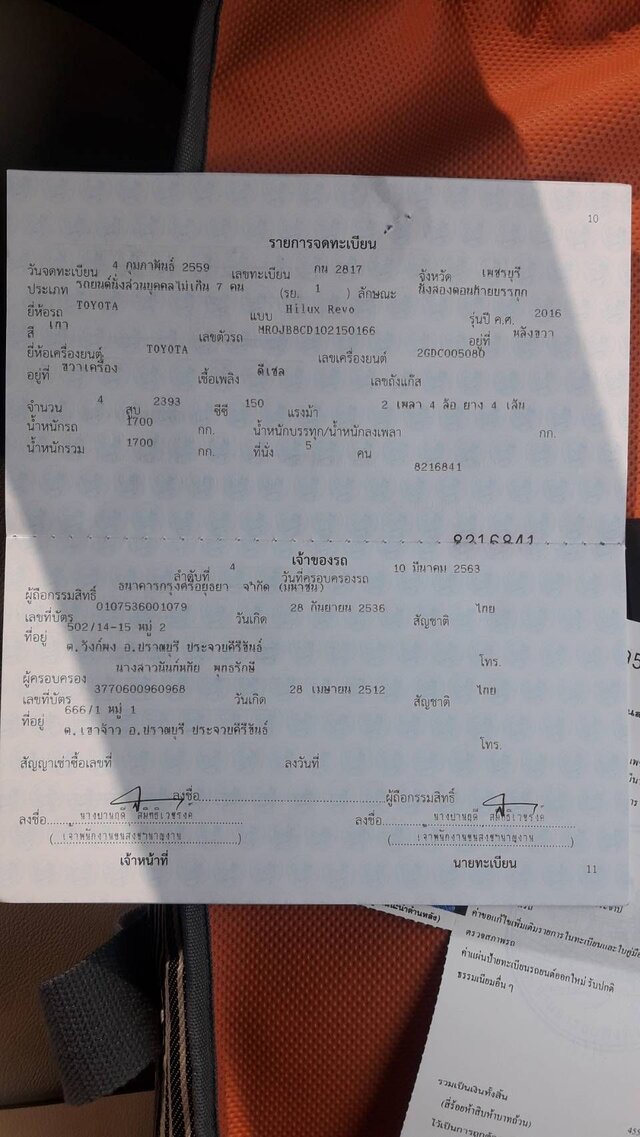 10
รายการจดทะเบียน
วันจดทะเบียน 4 กุมภาพันธ์ 2559 เลขทะเบียน กน 2817 จังหวัด เพชรบุรี
ประเภท รถยนต์นั่งส่วนบุคคลไม่เกิน 7 คน (รย. 1 ) ลักษณะ นั่งสองตอนท้ายบรรทุก
ยี่ห้อรถ TOYOTA แบบ Hilux Revo รุ่นปี ค.ศ. 2016
สี เทา เลขตัวรถ MR0JB8CD102150166 อยู่ที่ หลังขวา
ยี่ห้อเครื่องยนต์ TOYOTA เลขเครื่องยนต์ 2GDC005080
อยู่ที่ ขวาเครื่อง เชื้อเพลิง ดีเซล เลขถังแก๊ส
จำนวน 4 สูบ 2393 ซีซี 150 แรงม้า 2 เพลา 4 ล้อ ยาง 4 เส้น
น้ำหนักรถ 1700 กก. น้ำหนักบรรทุก/น้ำหนักลงเพลา กก.
น้ำหนักรวม 1700 กก. ที่นั่ง 5 คน
8216841
8216841
เจ้าของรถ
ลำดับที่ 4 วันที่ครอบครองรถ 10 มีนาคม 2563
ผู้ถือกรรมสิทธิ์ ธนาคารกรุงศรีอยุธยา จำกัด (มหาชน)
เลขที่บัตร 0107536001079 วันเกิด 28 กันยายน 2536 สัญชาติ ไทย
ที่อยู่ 502/14-15 หมู่ 2
ต.วังก์พง อ.ปราณบุรี ประจวบคีรีขันธ์
โทร.
ผู้ครอบครอง นางสาวนันท์หทัย พุทธรักษี
เลขที่บัตร 3770600960968 วันเกิด 28 เมษายน 2512 สัญชาติ ไทย
ที่อยู่ 666/1 หมู่ 1
ต.เขาจ้าว อ.ปราณบุรี ประจวบคีรีขันธ์
โทร.
สัญญาเช่าซื้อเลขที่ ลงวันที่
ลงชื่อ ผู้ถือกรรมสิทธิ์
ลงชื่อ นางปานฤดี สมิทธิเวชรงค์ ลงชื่อ นางปานฤดี สมิทธิเวชรงค์
(เจ้าพนักงานขนส่งชำนาญงาน) (เจ้าพนักงานขนส่งชำนาญงาน)
เจ้าหน้าที่ นายทะเบียน
11
ค่าขอแก้ไขเพิ่มเติมรายการในทะเบียนและใบคู่มือ
ตรวจสภาพรถ
ค่าแผ่นป้ายทะเบียนรถยนต์ออกใหม่ รับปกติ
ธรรมเนียมอื่น ๆ
รวมเป็นเงินทั้งสิ้น
(สี่ร้อยห้าสิบห้าบาทถ้วน)
455
ไว้เป็นการถูกต้อง